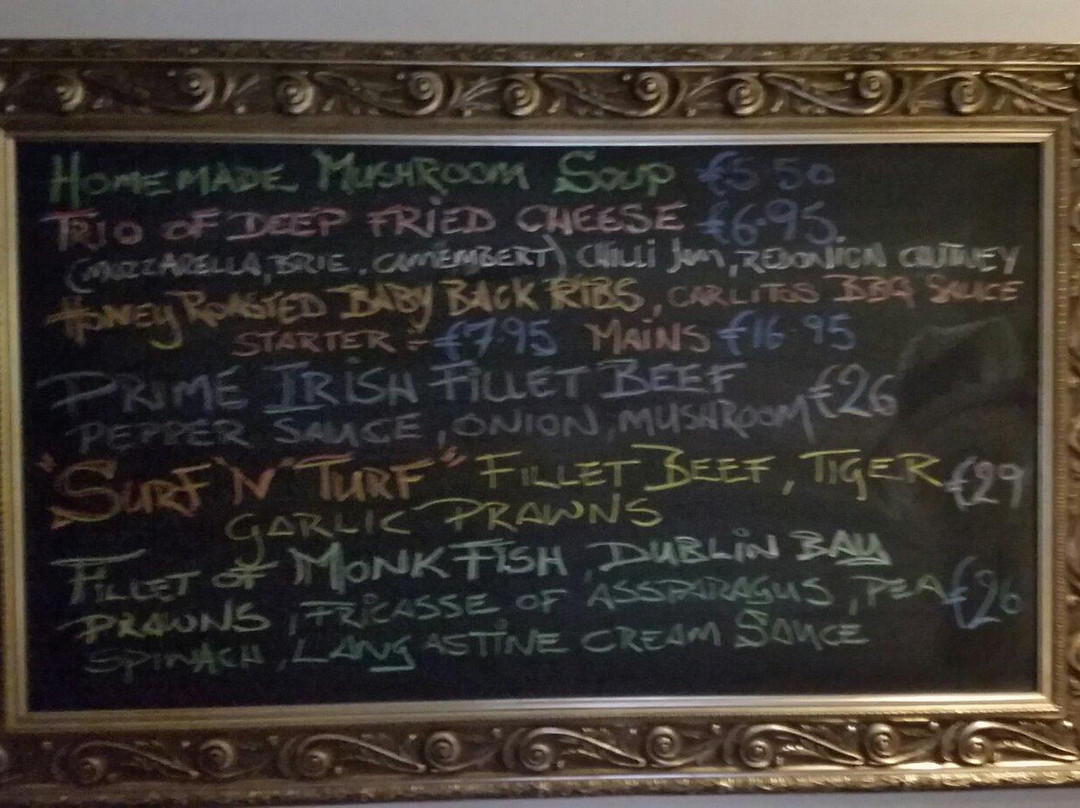 HOMEMADE MUSHROOM SOUP €5.50
TRIO OF DEEP FRIED CHEESE €6.95
(MOZZARELLA, BRIE, CAMEMBERT) CHILLI Jam, REDONION CHUTNEY
HONEY ROASTED BABY BACK RIBS, CARLITOS BBQ SAUCE
STARTER - €7.95 MAINS €16.95
PRIME IRISH FILLET BEEF €26
PEPPER SAUCE, ONION, MUSHROOM
"SURF 'N' TURF" FILLET BEEF, TIGER €29
GARLIC PRAWNS
FILLET OF MONKFISH, DUBLIN BAY
PRAWNS, FRICASSE OF ASSPARAGUS, PEA €26
SPINACH, LANGASTINE CREAM SAUCE